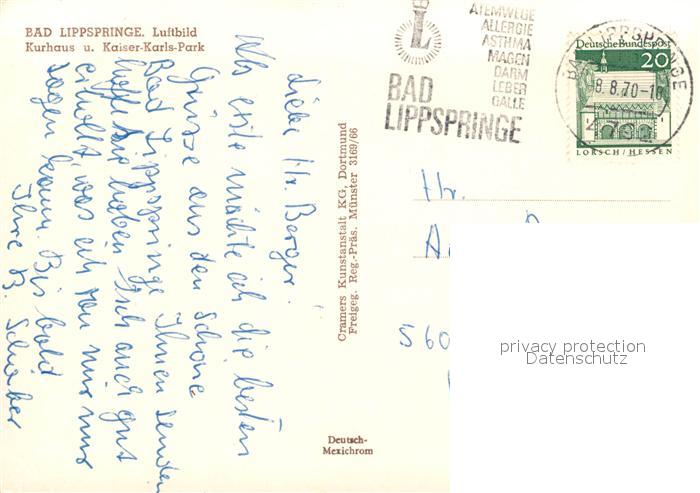 BAD LIPPSPRINGE. Luftbild
Kurhaus u. Kaiser-Karls-Park
Liebe Hr. Berger!
Als erste möchte ich die besten
Grüsse aus den schöne
Bad Lippspringe Ihnen senden
hoffe Sie haben sich auch gut
erholt, was ich von mir nur
sagen kann. Bis bald
Ihre B.
Cramers Kunstanstalt KG, Dortmund
Freigeg. Reg.-Präs. Münster 3169/66
Deutsch-
Mexichrom
L
ATEMWEGE
ALLERGIE
ASTHMA
MAGEN
DARM
LEBER
GALLE
BAD
LIPPSPRINGE
BAD LIPPSPRINGE
8.8.70-18
Deutsche Bundespost
20
LORSCH/HESSEN
Hr.
A
560
privacy protection
Datenschutz